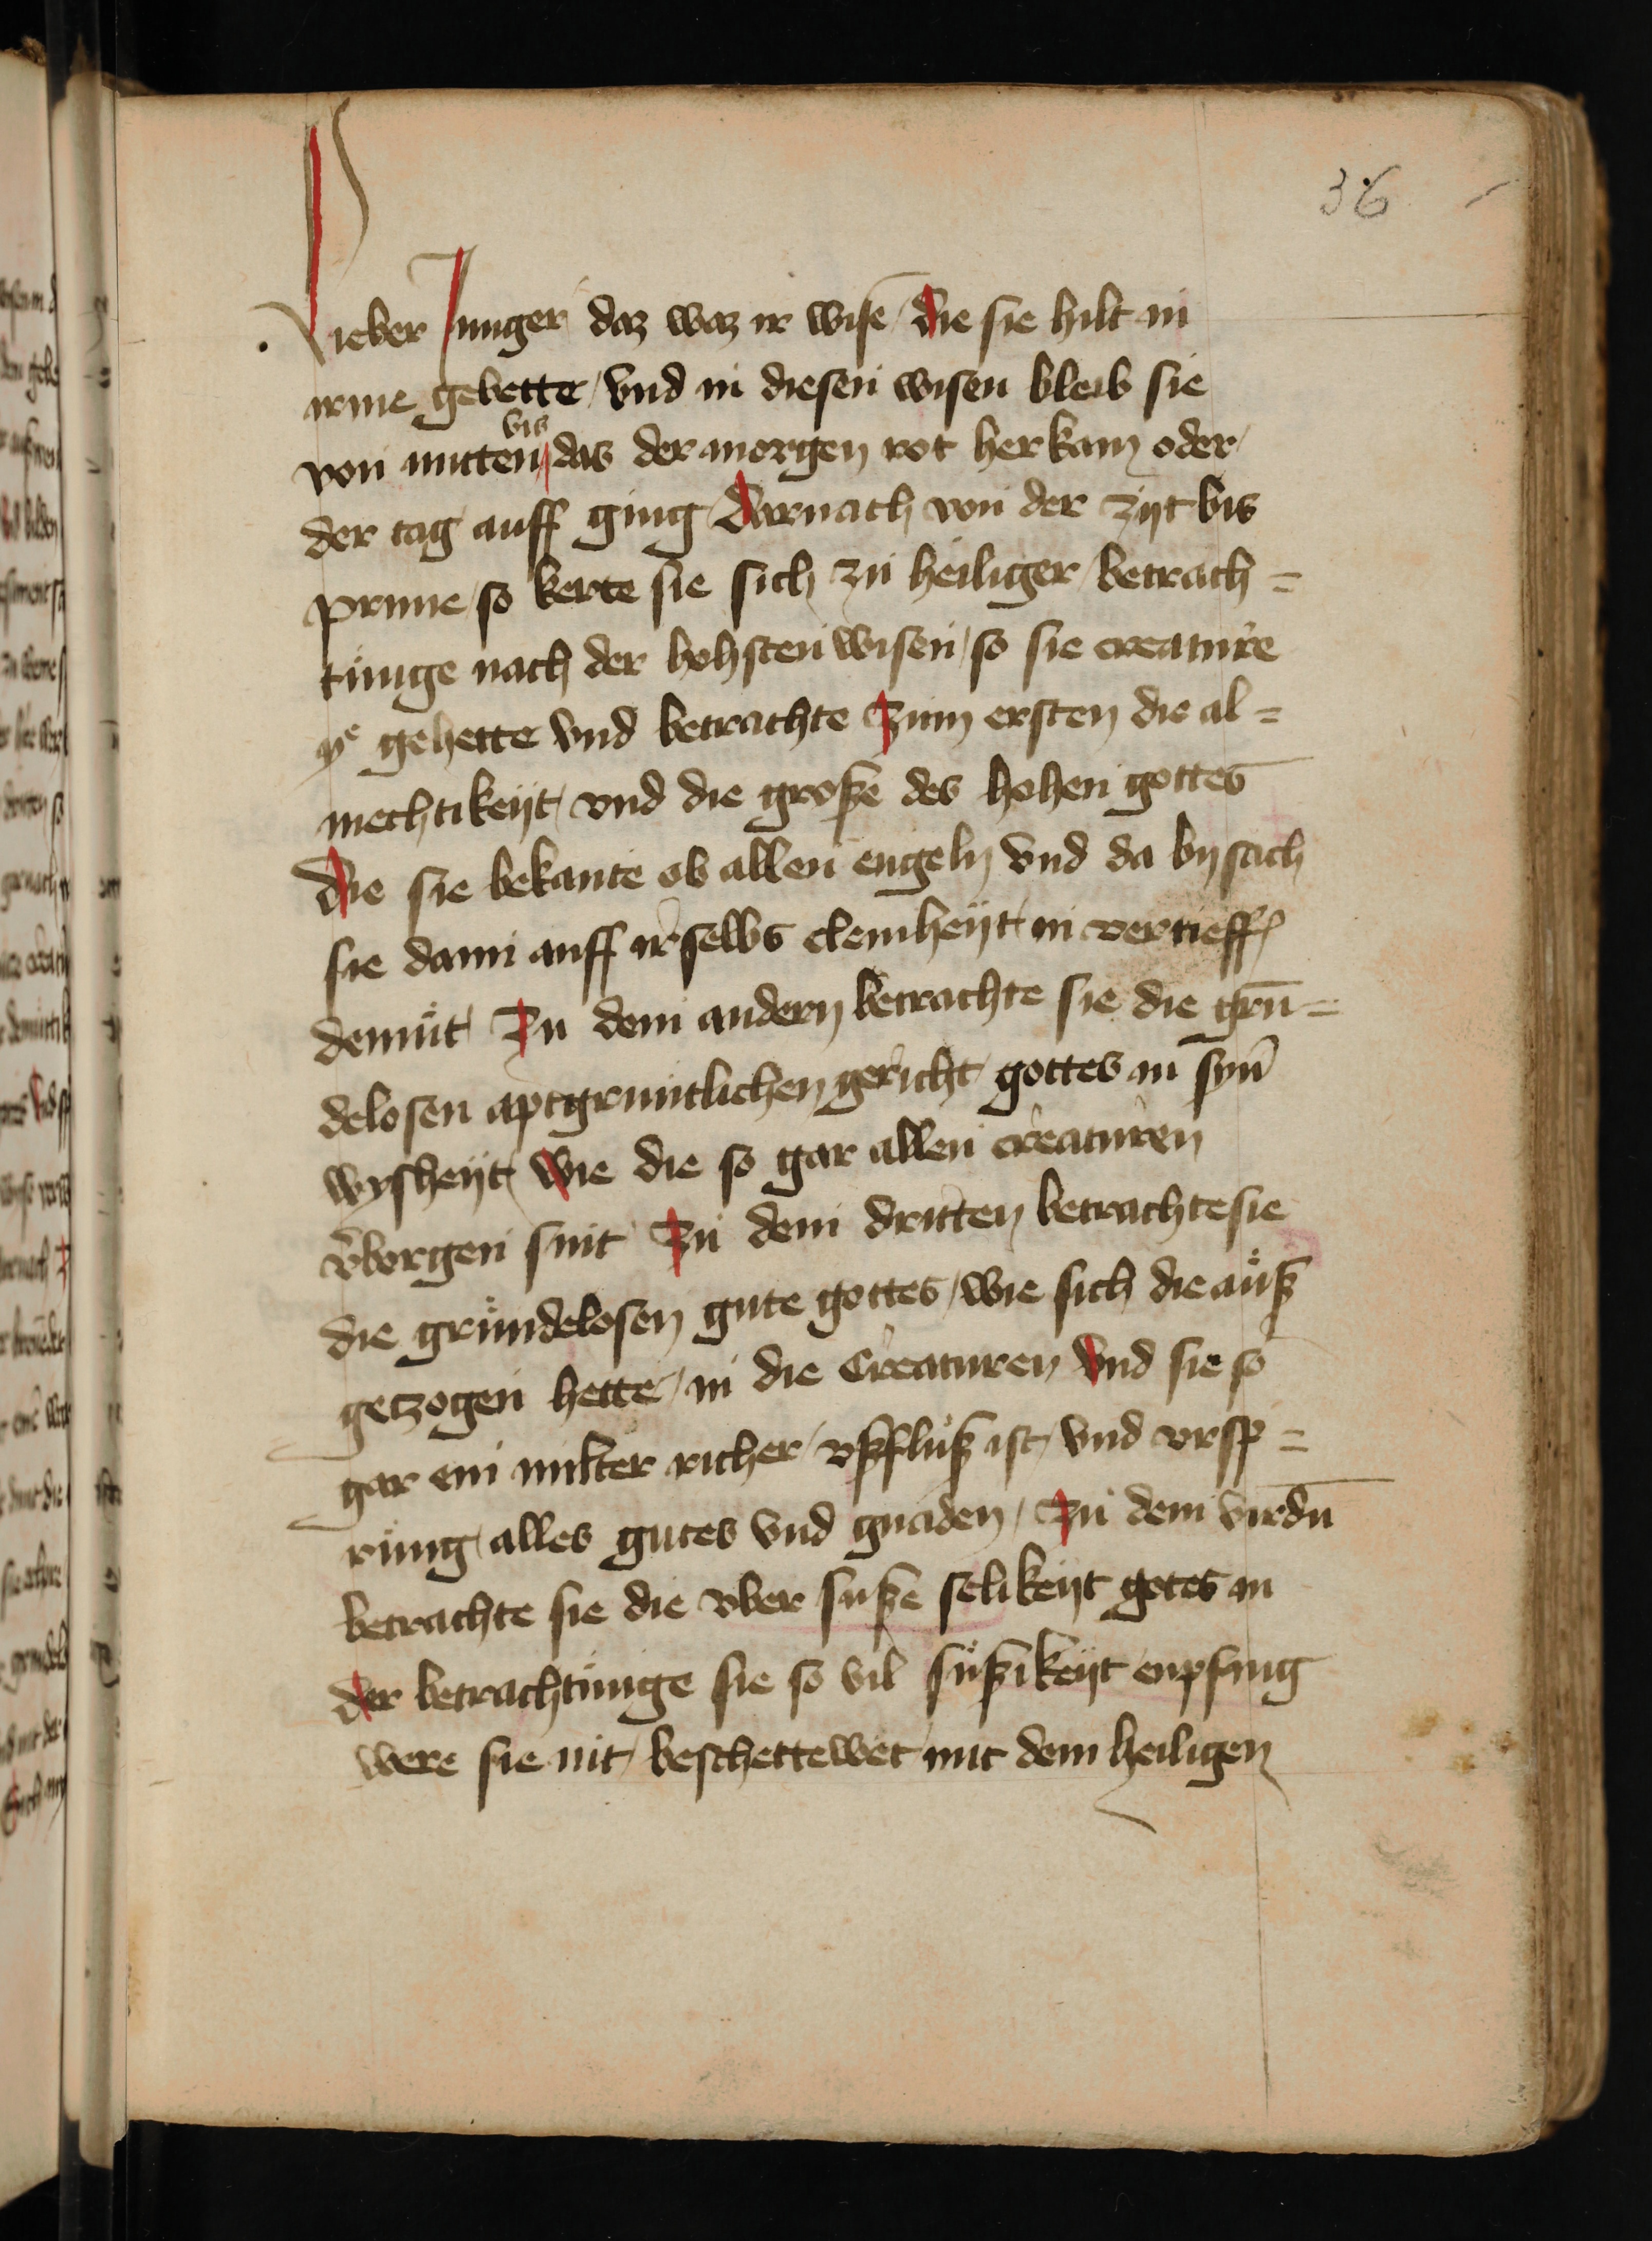 36
Lieber Junger daz waz ir wisē die sie hilt in
irme gebette / vnd in diesen wisen bleib sie
bis
von mitten das der morgen rot her kam oder
der tag auff ging Darnach von der zijt bis
prime / so kerte sie sich zu heiliger betrach=
tunge nach der hohsten wisen / so sie creature
ye gehette vnd betrachte Zum ersten die al=
mechtikeijt / vnd die große des hohen gottes
Die sie bekante ob allen engeln vnd da by sach
sie dann auff ir selbs cleinheijt in vertieff
demut Zu dem andern betrachte sie die grū=
delosen aptgruntlichen gericht gottes in syn̄
wysheijt / wie die so gar allen creaturen
vborgen sint Zu dem dritten betrachte sie
die grundelosen gute gottes / wie sich die auß
getzogen hette / in die Creaturen vnd sie so
gar ein milter richer / vßfluß ist / vnd vrsp=
rung alles gutes vnd gnaden / Zu dem virdn̄
betrachte sie die vber suße selikeijt gotes in
der betrachtunge sie so vil sußikeijt enpfing
were sie nit beschettewet mit dem heiligen